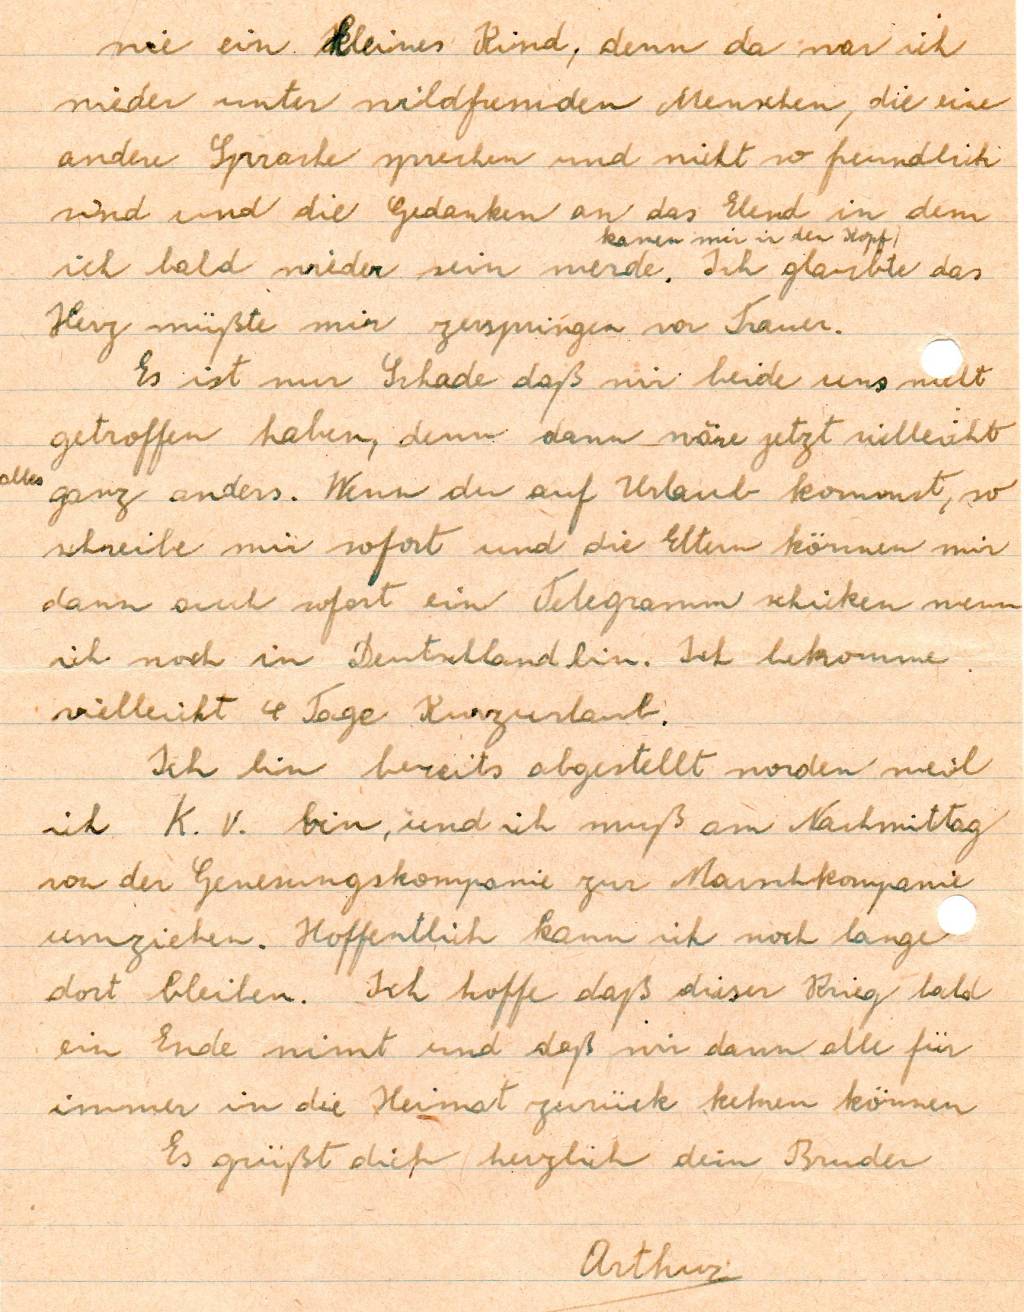 wie ein kleines Kind, denn da war ich
wieder unter wildfremden Menschen, die eine
andere Sprache sprechen und nicht so freundlich
sind und die Gedanken an das Elend in dem
kamen mir in den Kopf)
ich bald wieder sein werde. Ich glaubte das
Herz müßte mir zerspringen vor Trauer.
Es ist nur Schade daß wir beide uns nicht
getroffen haben, denn dann wäre jetzt vielleicht
alles ganz anders. Wenn du auf Urlaub kommst, so
schreibe mir sofort und die Eltern können mir
dann auch sofort ein Telegramm schicken wenn
ich noch in Deutschland bin. Ich bekomme
vielleicht 4 Tage Kurzurlaub.
Ich bin bereits abgestellt worden weil
ich K. V. bin, und ich muß am Nachmittag
von der Genesungskompanie zur Marschkompanie
umziehen. Hoffentlich kann ich noch lange
dort bleiben. Ich hoffe daß dieser Krieg bald
ein Ende nimt und daß wir dann alle für
immer in die Heimat zurück kehren können
Es grüßt dich herzlich dein Bruder
Arthur